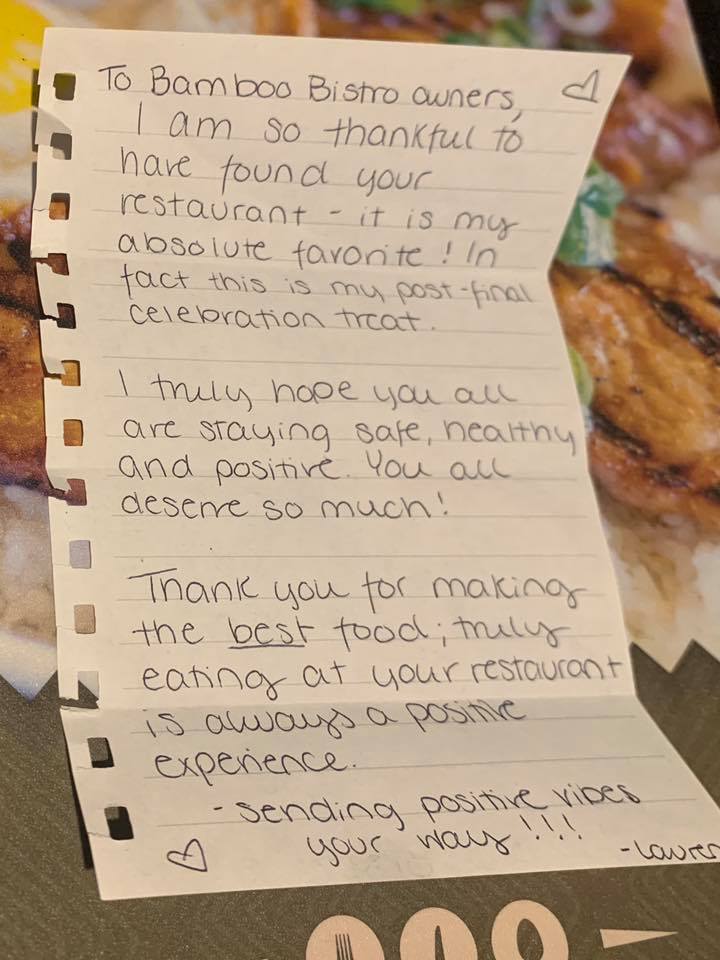 To Bamboo Bistro owners,
I am so thankful to
have found your
restaurant - it is my
absolute favorite! In
fact this is my post-final
celebration treat.
I truly hope you all
are staying safe, healthy
and positive. You all
deserve so much!
Thank you for making
the best food; truly
eating at your restaurant
is always a positive
experience.
- sending positive vibes
your way!!!!
- Lauren